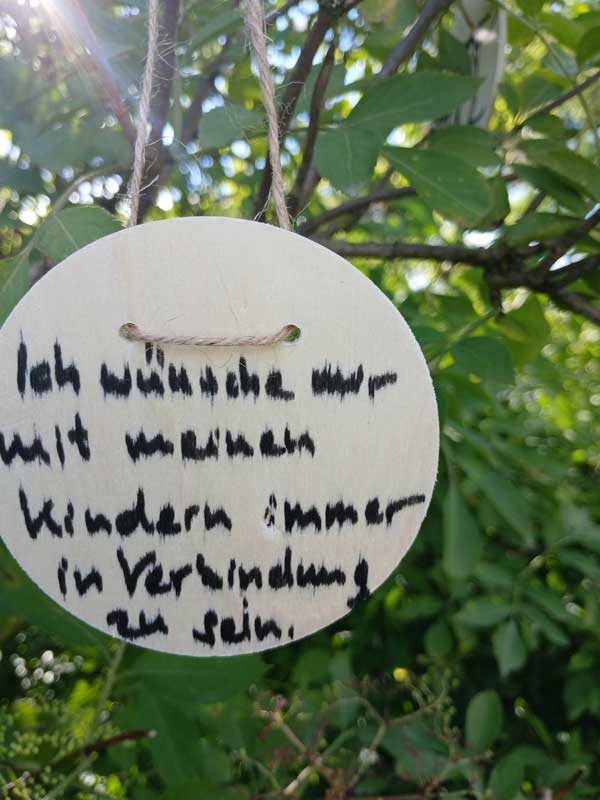 Ich wünsche mir
mit meinen
Kindern immer
in Verbindung
zu sein.